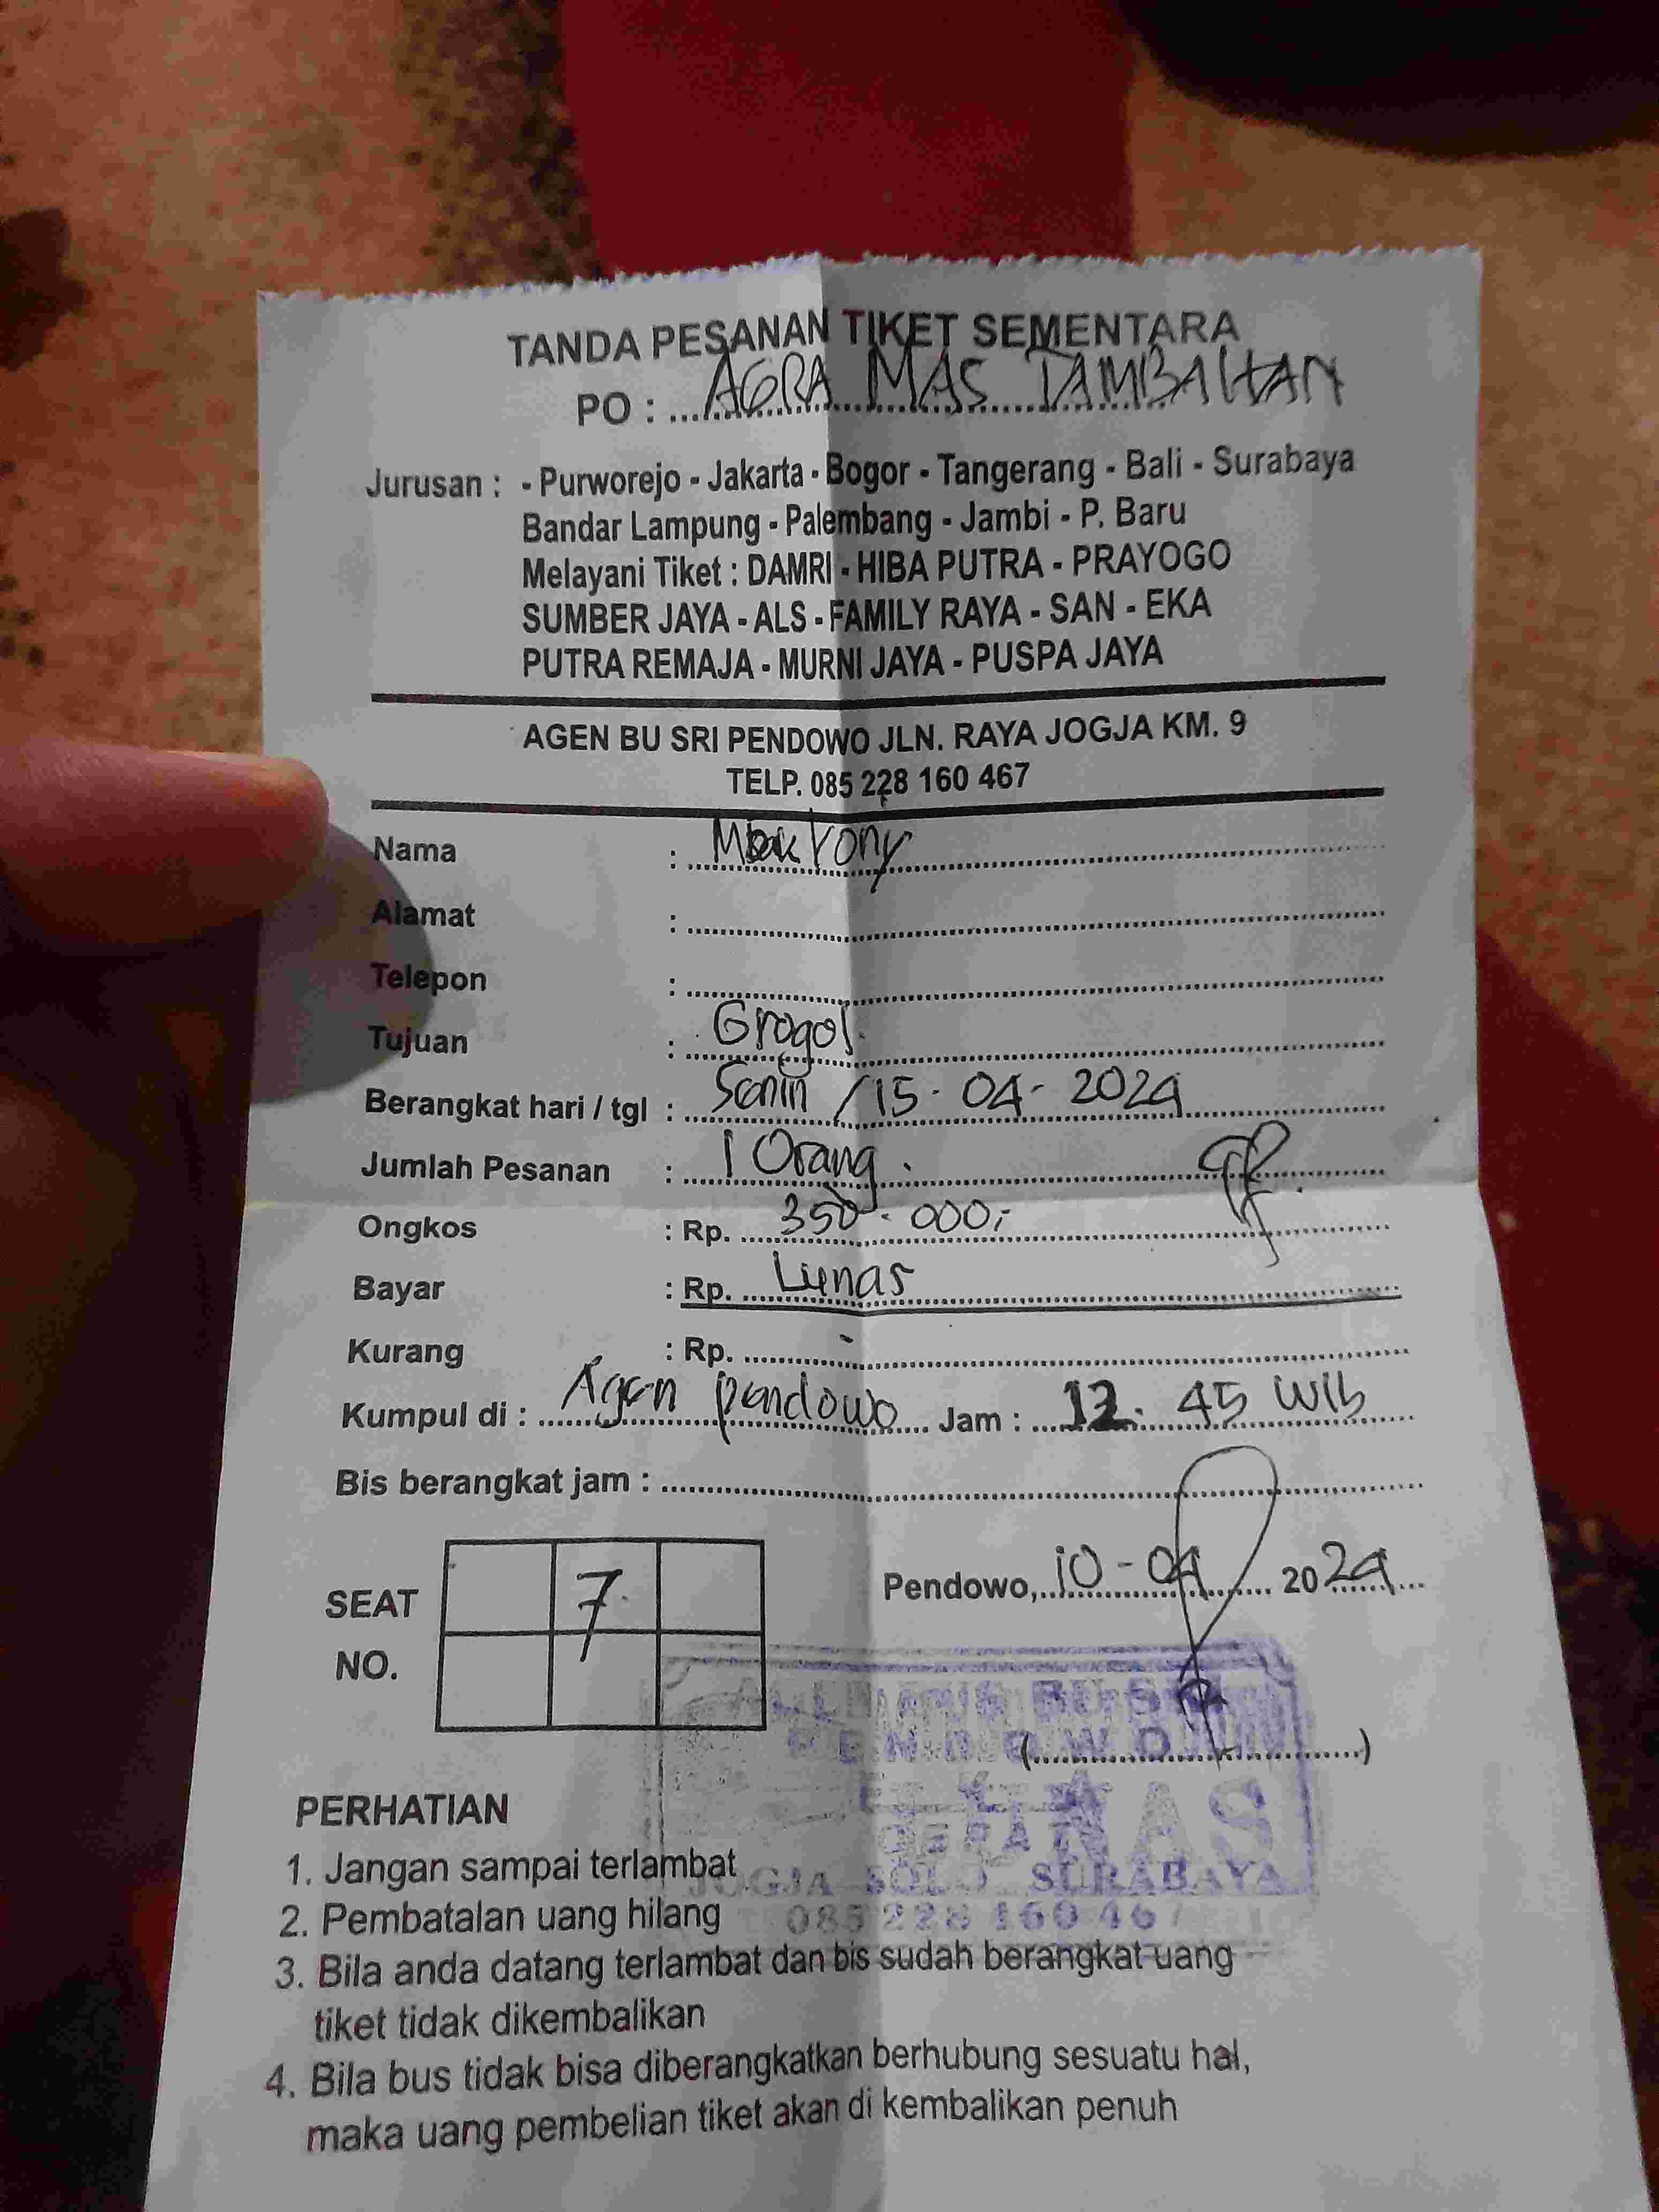 TANDA PESANAN TIKET SEMENTARA
PO : AGRA MAS TAMBAHAN
Jurusan : - Purworejo - Jakarta - Bogor - Tangerang - Bali - Surabaya
Bandar Lampung - Palembang - Jambi - P. Baru
Melayani Tiket : DAMRI - HIBA PUTRA - PRAYOGO
SUMBER JAYA - ALS - FAMILY RAYA - SAN - EKA
PUTRA REMAJA - MURNI JAYA - PUSPA JAYA
AGEN BU SRI PENDOWO JLN. RAYA JOGJA KM. 9
TELP. 085 228 160 467
Nama : Mbak Yony
Alamat :
Telepon :
Tujuan : Grogol
Berangkat hari / tgl : Senin / 15 - 04 - 2024
Jumlah Pesanan : 1 Orang.
Ongkos : Rp. 350.000,-
Bayar : Rp. Lunas
Kurang : Rp. -
Kumpul di : Agen pendowo Jam : 12. 45 WIB
Bis berangkat jam :
SEAT NO. 7
Pendowo, 10 - 04 2024
(....................)
JOGJA SOLO SURABAYA
085 228 160 467
PERHATIAN
1. Jangan sampai terlambat
2. Pembatalan uang hilang
3. Bila anda datang terlambat dan bis sudah berangkat uang
tiket tidak dikembalikan
4. Bila bus tidak bisa diberangkatkan berhubung sesuatu hal,
maka uang pembelian tiket akan di kembalikan penuh